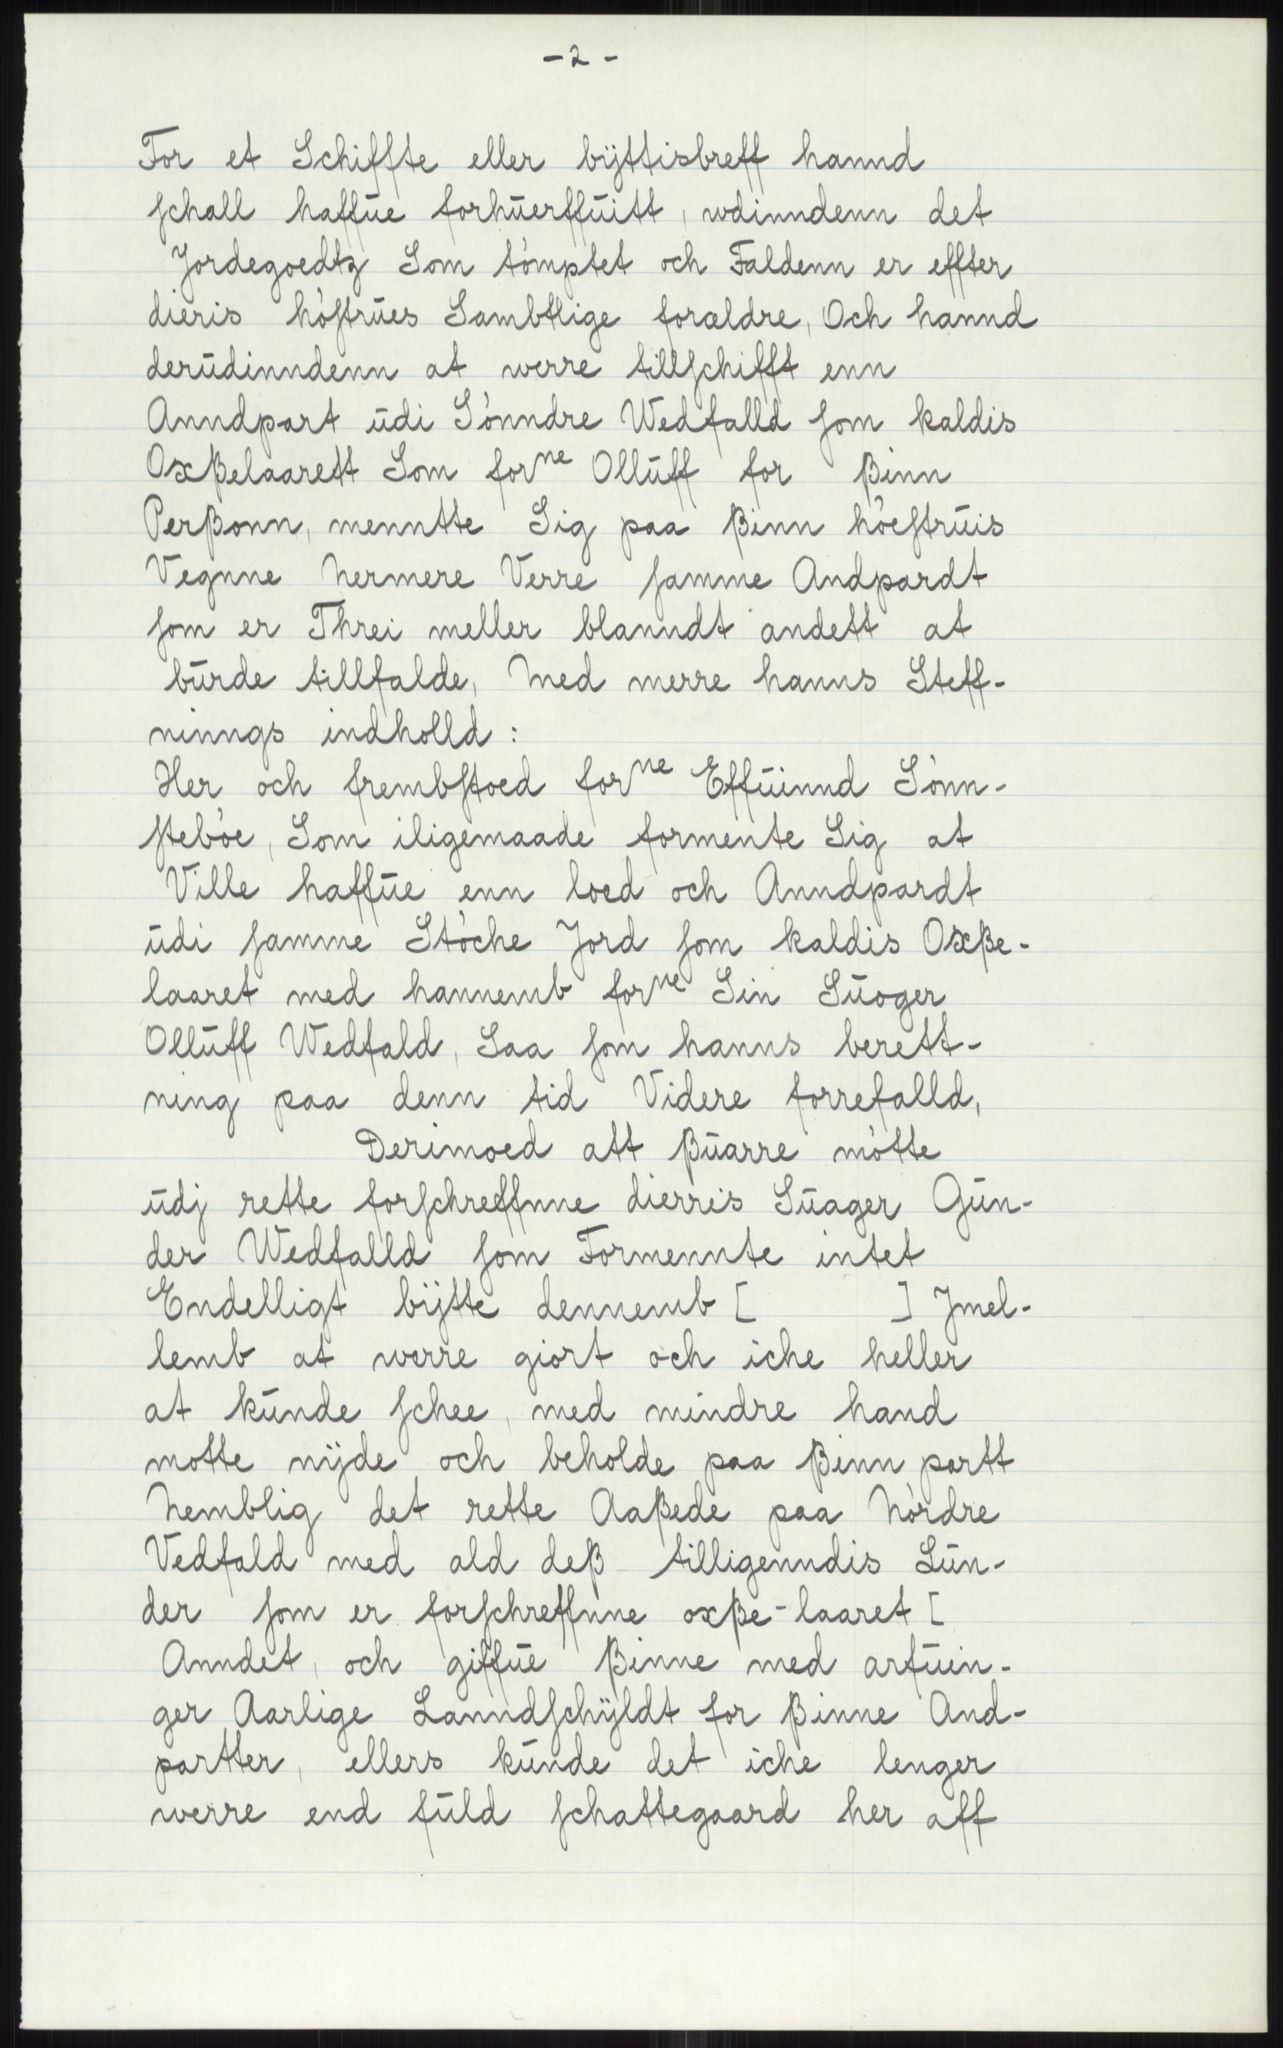 - 2 -
For et Schiffte eller bÿttisbreff hannd
schall haffue forhuerffuitt, wdinndenn det
Jordegoedtz Som tómptet och Faldenn er effter
dieris hóstrues Sambtlige forældre, Och hannd
derudinndenn at werre tillschifft enn
Anndpart udi Sónndre Wedfalld som kaldis
Oxßelaarett Som forne Olluff for ßinn
Perßonn, menntte Sig paa ßinn hóestruis
Vegnne Nermere Verre samme Andpardt
som er Threi meller blanndt andett at
burde tillfalde, Med merre hanns Steff-
ninngs indholld :
Her och frembstoed forne Effuinnd Sónn-
stebóe, Som iligemaade formente Sig at
Ville haffue enn loed och Anndpardt
udi samme Stóche Jord som kaldis Oxße-
laaret med hannemb forne Sin Suoger
Olluff Wedfald, Saa som hanns berett-
ning paa denn tid Videre forrefalld,
Derimoed att ßuarre mótte
udj rette forschreffnne dierris Suager Gun-
der Wedfalld som Formennte intet
Endelligt bÿtte dennemb [ ] Jmel-
lemb at werre giort och iche heller
at kunde schee, med mindre hand
motte nÿde och beholde paa ßinn partt
Nemblig det rette Aaßede paa Nórdre
Vedfald med ald deß tilligenndis Lun-
der som er forschreffnne oxße-laaret [
Anndet, och giffue ßinne med arfuin-
ger Aarlige Lanndschÿldt for ßinne And-
partter, ellers kunde det iche lenger
werre end fuld schattegaard her aff